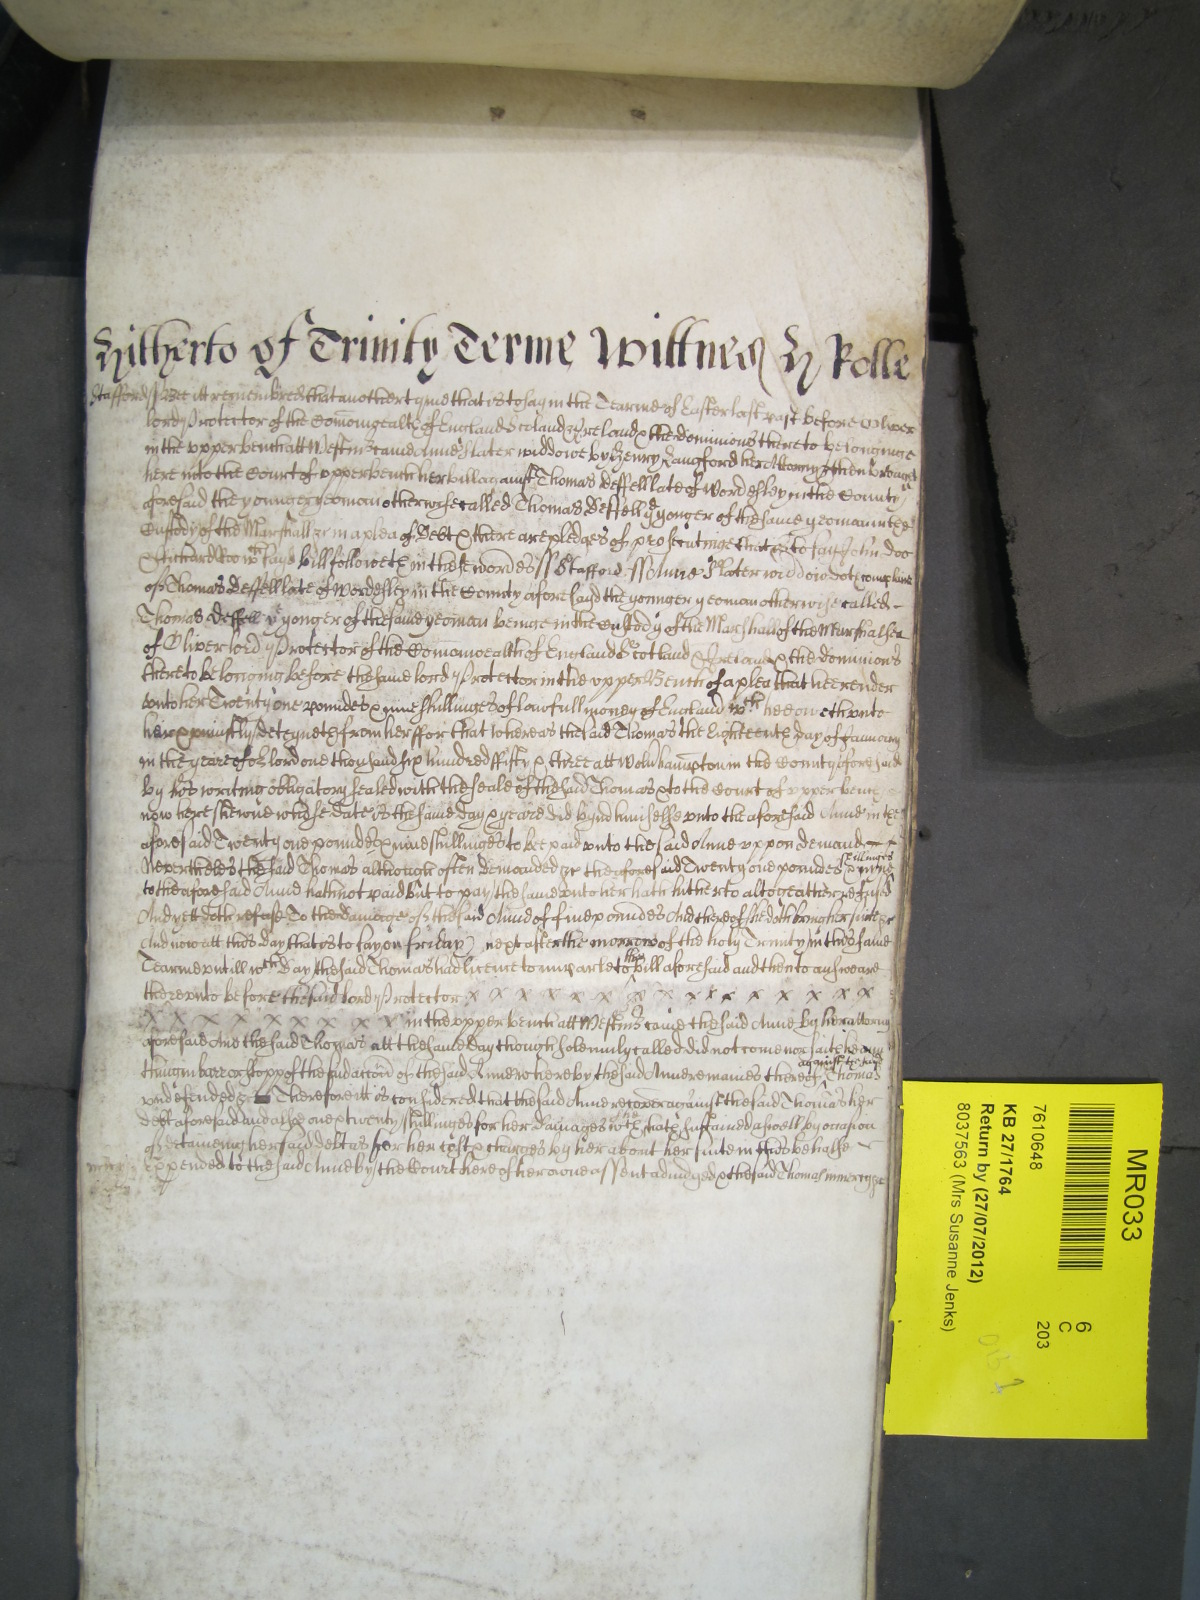 Hitherto of Trinity Terme Wittnes H Rolle
Stafford ss Bee itt remembred that another tyme that is to say in the Tearme of Easter last past before Oliver
lord Protector of the Comonwealth of England Scotland & Ireland & the dominions thereto belonginge
in the upper bench att Westmr came Anne Slater widdowe by Henry Langford her Attorny & then brought
here into the Court of upper bench her bill against Thomas Deffell late of Wordesley in the County
aforesaid the younger yeoman otherwise called Thomas Deffell ye yonger of the same yeoman in the
Custody of the Marshall &c in a plea of Debt & there are pledges of prosecutinge that is to say John Doo
& Richard Roo wch sayd bill followeth in these wordes ss Stafford ss Anne Slater widdow doth complaine
of Thomas Deffell late of Wordesley in the County aforesayd the younger yeoman otherwise called
Thomas Deffell ye yonger of the same yeoman beinge in the Custody of the Marshall of the Marshalsea
of Oliver lord Protector of the Comonwealth of England Scotland & Ireland & the dominions
thereto belonging before the same lord Protector in the upper Bench of a plea that hee render
unto her Twenty one poundes & nine shillinges of lawfull money of England wch he oweth unto
her & uniustly deteyneth from her ffor that whereas the said Thomas the Eighteenth day of January
in the yeare of or lord one thousand six hundred ffifty & three att Wolverhampton in the County aforesaid
by his writing obligatory sealed with the seale of the said Thomas & to the Court of upper bench
now here shewne whose date is the same day & yeare did bynd himselfe unto the aforesaid Anne in the
aforesaid Twenty one poundes & nine shillinges to bee paid unto the said Anne uppon demand
Neverthelesse the said Thomas although often demanded &c the aforesaid Twenty one poundes & nyne shillinges
to the aforesaid Anne hath not paid but to pay the same unto her hath hitherto altogeather refused
And yett doth refuse To the damage of the said Anne of five poundes And thereof she doth bring her suite &c
And now att this day that is to say on Friday next after the morrow of the holy Trinity in this same
Tearme untill wch Day the said Thomas had licence to imparle to the bill aforesaid and then to answeare
thereunto before the said lord Protector x x x x x x x x x x x x x x x
x x x x x x x x x in the upper bench att Westmr came the said Anne by her attorny
aforesaid And the said Thomas att the same day though solemnly called did not come nor saith hee any
thing in barr or stopp of the said action of the said Anne whereby the said Anne remaines thereof against the said Thomas
undefended &c Therefore itt is considered that the said Anne recover against the said Thomas her
debt aforesaid and alsoe one & twenty shillinges for her damages wch shee hath sustained aswell by occasion
of detaining her said debt as for her costs & charges by her about her suite in this behalfe
expended to the said Anne by the Court here of her owne assent adiudged & the said Thomas in mercy &c
mercy
MR033
6
C
203
7610648
KB 27/1764
Return by (27/07/2012)
8037563 (Mrs Susanne Jenks)